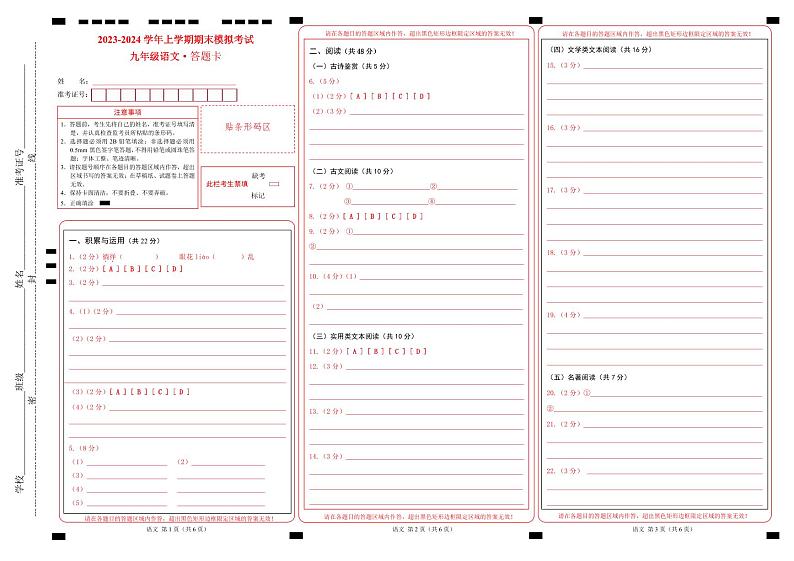 学校
班级
姓名
准考证号
密
封
线
2023-2024 学年上学期期末模拟考试
九年级语文·答题卡
姓 名：
准考证号：
注意事项
1．答题前，考生先将自己的姓名，准考证号填写清
楚，并认真检查监考员所粘贴的条形码。
2．选择题必须用 2B 铅笔填涂；非选择题必须用
0.5mm 黑色签字笔答题，不得用铅笔或圆珠笔答
题；字体工整、笔迹清晰。
3．请按题号顺序在各题目的答题区域内作答，超出
区域书写的答案无效；在草稿纸、试题卷上答题
无效。
4．保持卡面清洁，不要折叠、不要弄破。
5．正确填涂
贴条形码区
此栏考生禁填
缺考
标记
一、积累与运用（共 22 分）
1.（2 分）徜徉（ ） 眼花 liáo（ ）乱
2.（2 分）[ A ] [ B ] [ C ] [ D ]
3.（2 分）
4.（1）（2 分）
（2）（2 分）
（3）（2 分）[ A ] [ B ] [ C ] [ D ]
（4）（2 分）
5.（8 分）
（1） （2）
（3）
（4）
（5）
请在各题目的答题区域内作答，超出黑色矩形边框限定区域的答案无效！
语文 第 1 页（共 6 页）
请在各题目的答题区域内作答，超出黑色矩形边框限定区域的答案无效！
二、阅读（共 48 分）
（一）古诗鉴赏（共 5 分）
6.（5 分）
（1）（2 分）[ A ] [ B ] [ C ] [ D ]
（2）（3 分）
（二）古文阅读（共 10 分）
7.（2 分） ① ②
③ ④
8.（2 分）[ A ] [ B ] [ C ] [ D ]
9.（2 分） ①
②
10.（4 分）（1）
（2）
（三）实用类文本阅读（共 10 分）
11.（2 分）[ A ] [ B ] [ C ] [ D ]
12.（3 分）
13.（2 分）
14.（3 分）
请在各题目的答题区域内作答，超出黑色矩形边框限定区域的答案无效！
语文 第 2 页（共 6 页）
请在各题目的答题区域内作答，超出黑色矩形边框限定区域的答案无效！
（四）文学类文本阅读（共 16 分）
15.（3 分）
16.（3 分）
17.（3 分）
18.（3 分）
19.（4 分）
（五）名著阅读（共 7 分）
20.（2 分）①
②
21.（2 分）
22.（3 分）
请在各题目的答题区域内作答，超出黑色矩形边框限定区域的答案无效！
语文 第 3 页（共 6 页）